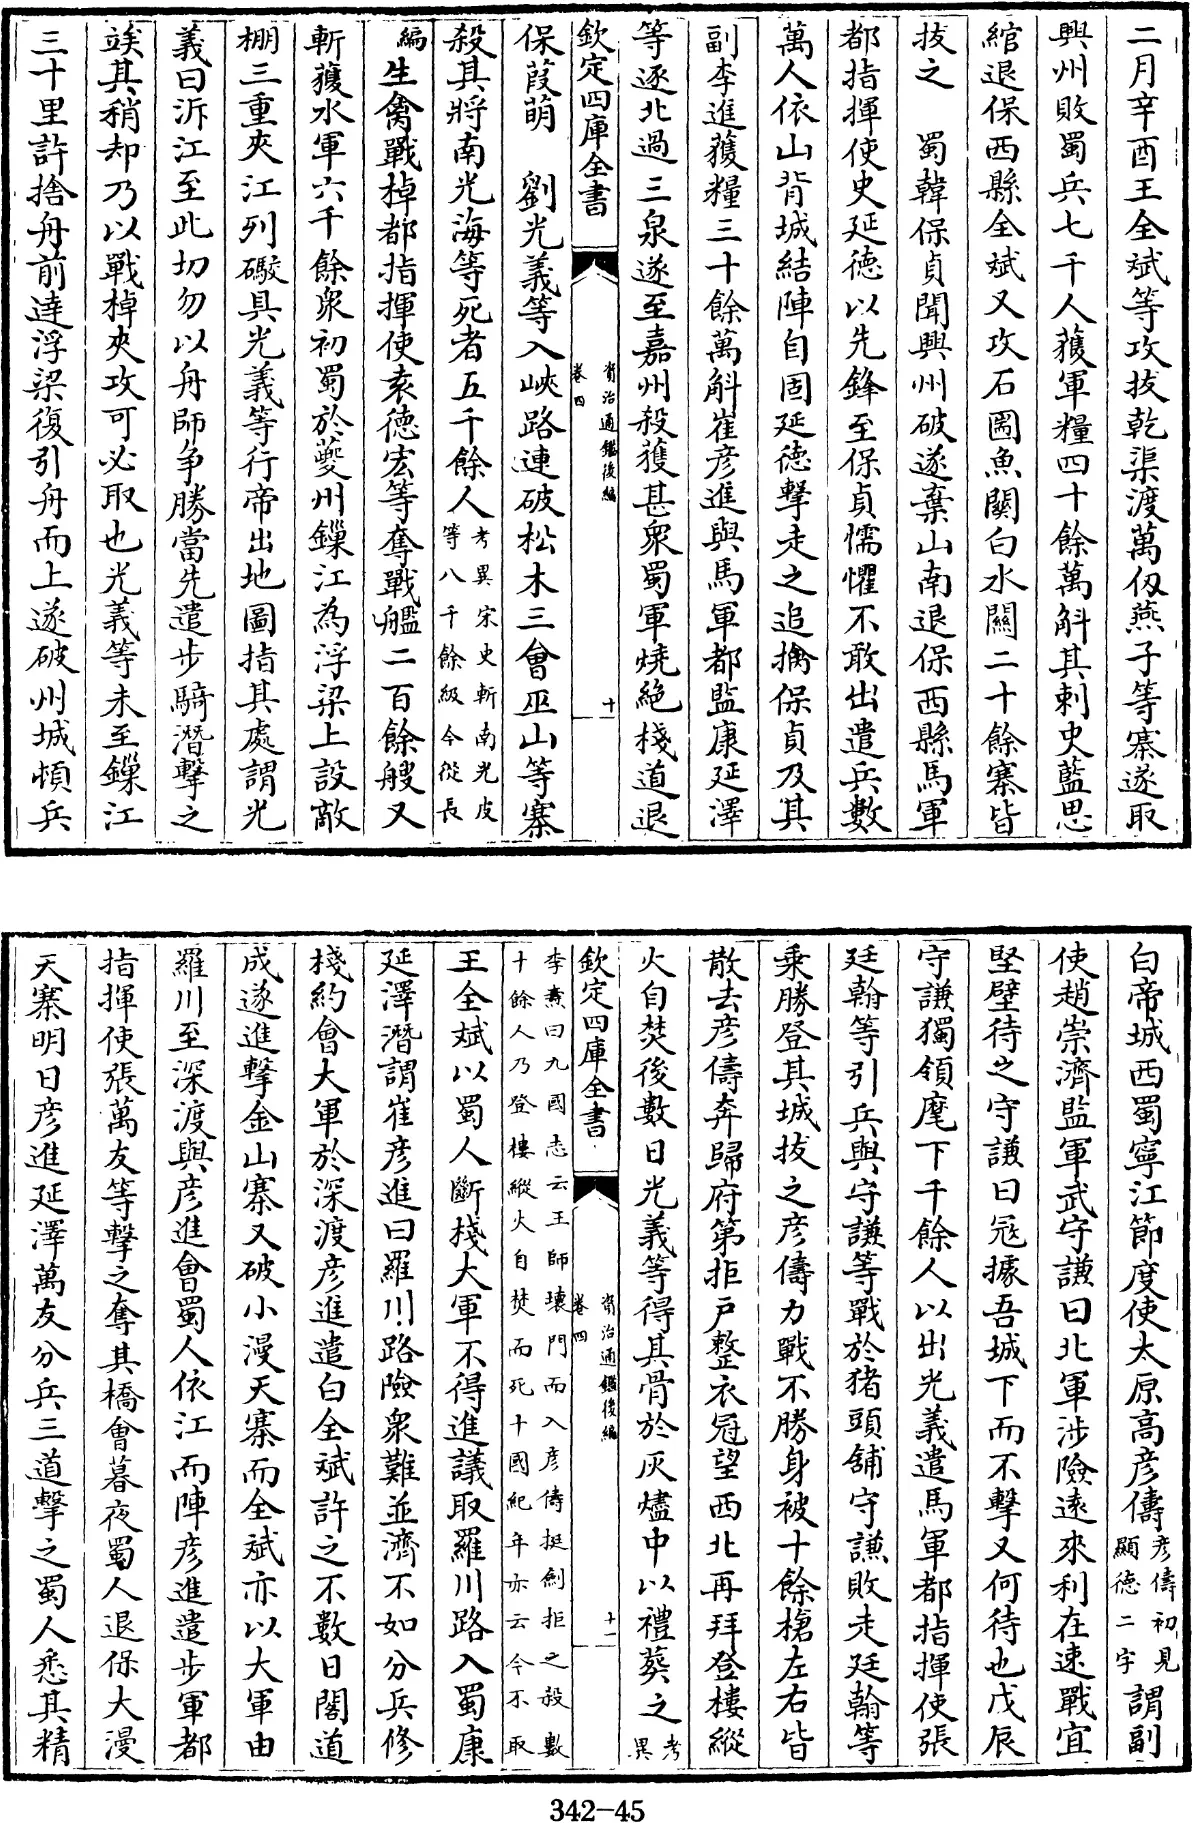 二月辛酉王全斌等攻拔乾渠渡萬仭燕子等寨遂取
興州敗蜀兵七千人獲軍糧四十餘萬斛其刺史藍思
綰退保西縣全斌又攻石圌魚關白水關二十餘寨皆
拔之　蜀韓保貞聞興州破遂棄山南退保西縣馬軍
都指揮使史延德以先鋒至保貞懦懼不敢出遣兵數
萬人依山背城結陣自固延德擊走之追擒保貞及其
副李進獲糧三十餘萬斛崔彦進與馬軍都監康延澤
等逐北過三泉遂至嘉州殺獲甚衆蜀軍燒絶棧道退
欽定四庫全書　資治通鑑後編卷四　十
保葭萌　劉光義等入峽路連破松木三會巫山等寨
殺其將南光海等死者五千餘人考異宋史斬南光皮等八千餘級今從長
編生禽戰棹都指揮使袁德宏等奪戰艦二百餘艘又
斬獲水軍六千餘衆初蜀於夔州鏁江為浮梁上設敵
棚三重夾江列礮具光義等行帝出地圖指其處謂光
義曰泝江至此切勿以舟師争勝當先遣步騎潛擊之
竢其稍却乃以戰棹夾攻可必取也光義等未至鏁江
三十里許捨舟前逹浮梁復引舟而上遂破州城頓兵
白帝城西蜀寧江節度使太原高彦儔彦儔初見顯德二字謂副
使趙崇濟監軍武守謙曰北軍涉險逺來利在速戰宜
堅壁待之守謙曰冦據吾城下而不擊又何待也戊辰
守謙獨領麾下千餘人以出光義遣馬軍都指揮使張
廷翰等引兵與守謙等戰於猪頭舖守謙敗走廷翰等
乗勝登其城拔之彦儔力戰不勝身被十餘槍左右皆
散去彦儔奔歸府第拒戸整衣冠望西北再拜登樓縱
火自焚後數日光義等得其骨於灰燼中以禮葬之考異
欽定四庫全書　資治通鑑後編卷四　十一
李燾曰九國志云王師壊門而入彦儔挺劍拒之殺數十餘人乃登樓縱火自焚而死十國紀年亦云今不取
王全斌以蜀人斷棧大軍不得進議取羅川路入蜀康
延澤潛謂崔彦進曰羅川路險衆難並濟不如分兵修
棧約會大軍於深渡彦進遣白全斌許之不數日閣道
成遂進擊金山寨又破小漫天寨而全斌亦以大軍由
羅川至深渡與彦進會蜀人依江而陣彦進遣步軍都
指揮使張萬友等擊之奪其橋會暮夜蜀人退保大漫
天寨明日彦進延澤萬友分兵三道擊之蜀人悉其精
342-45